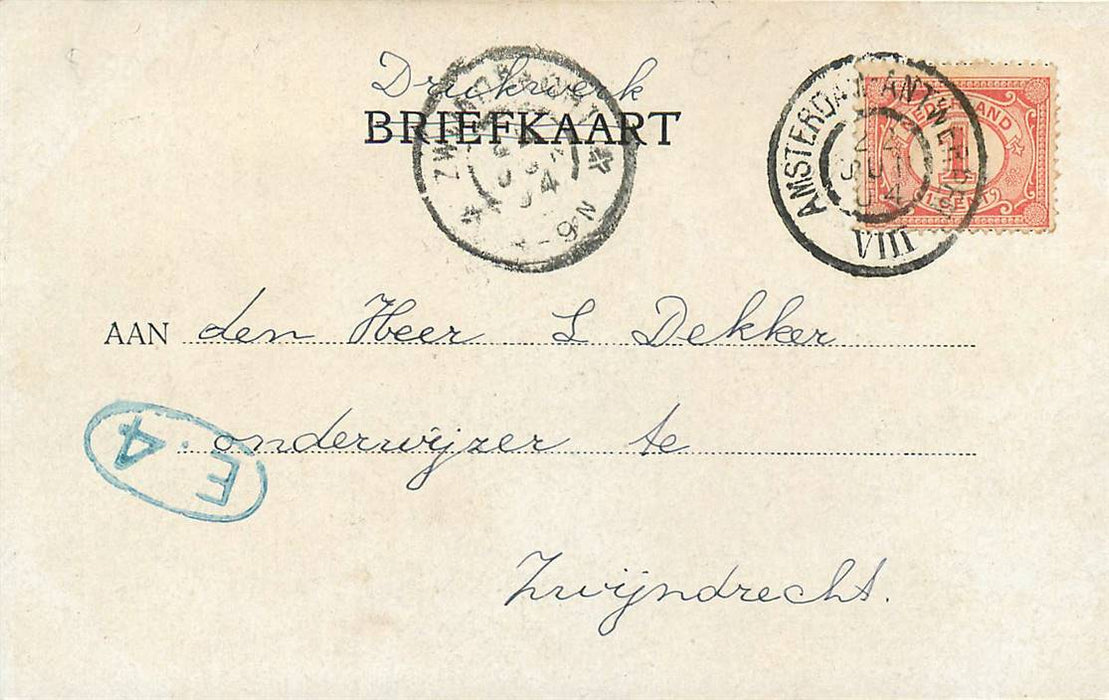 Drukwerk
BRIEFKAART
ZWIJNDRECHT
8-9N
AMSTERDAM-ANTWERPEN
JUN
04
VIII
NEDERLAND
1
CENT
AAN den Heer L Dekker
onderwijzer te
Zwijndrecht.
E.4